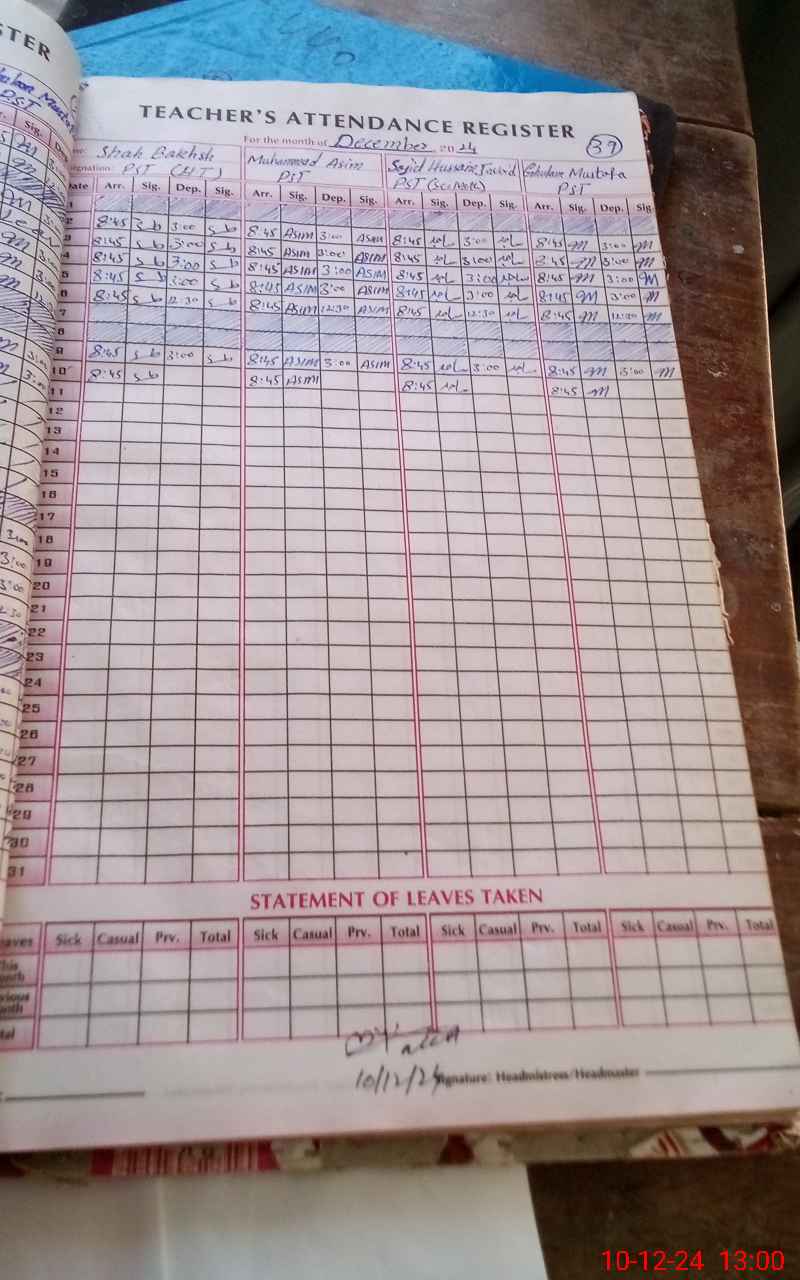 STER
TEACHER'S ATTENDANCE REGISTER 39
For the month of December 2024
Shah Bakhsh Muhammad Asim Sajid Hussain Javid Ghulam Mustafa
PST (HT) PST PST PST
Arr. Sig. Dep. Sig. Arr. Sig. Dep. Sig. Arr. Sig. Dep. Sig. Arr. Sig. Dep. Sig.
1
2 8:45 sb 3:00 sb 8:45 ASIM 3:00 ASIM 8:45 3:00 8:45 M 3:00 M
3 8:45 sb 3:00 sb 8:45 ASIM 3:00 ASIM 8:45 3:00 8:45 M 3:00 M
4 8:45 sb 3:00 sb 8:45 ASIM 3:00 ASIM 8:45 3:00 8:45 M 3:00 M
5 8:45 sb 3:00 sb 8:45 ASIM 3:00 ASIM 8:45 3:00 8:45 M 3:00 M
6 8:45 sb 12:30 sb 8:45 ASIM 12:30 ASIM 8:45 12:30 8:45 M 12:30 M
7
8
9 8:45 sb 3:00 sb 8:45 ASIM 3:00 ASIM 8:45 3:00 8:45 M 3:00 M
10 8:45 sb 8:45 ASIM 8:45 8:45 M
11
12
13
14
15
16
17
18
19
20
21
22
23
24
25
26
27
28
29
30
31
STATEMENT OF LEAVES TAKEN
eaves Sick Casual Prv. Total Sick Casual Prv. Total Sick Casual Prv. Total Sick Casual Prv. Total
This
onth
vious
onth
tal
10/12/24 Signature: Headmistress/Headmaster
10-12-24 13:00